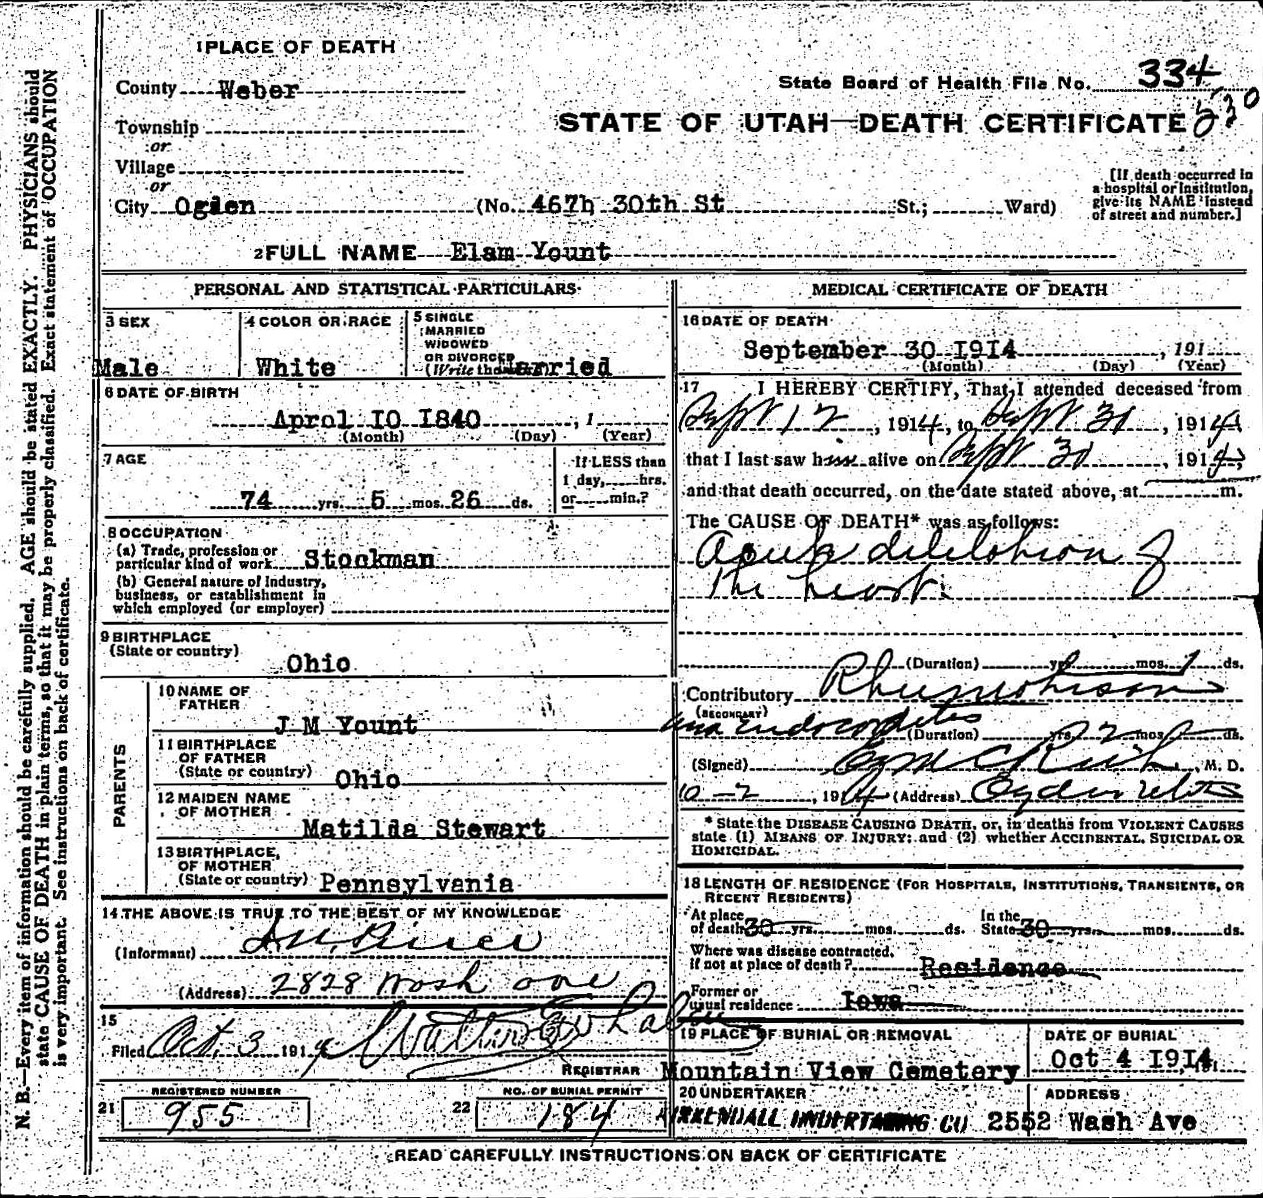 1 PLACE OF DEATH
County Weber
State Board of Health File No. 334
530
STATE OF UTAH—DEATH CERTIFICATE
Township
or
Village
or
City Ogden (No. 467h 30th St St.; Ward)
[If death occurred in
a hospital or institution,
give its NAME instead
of street and number.]
2 FULL NAME Elam Yount
PERSONAL AND STATISTICAL PARTICULARS
3 SEX
Male
4 COLOR OR RACE
White
5 SINGLE
MARRIED
WIDOWED
OR DIVORCED
(Write the Married
6 DATE OF BIRTH
Aprol I0 I840, 1
(Month) (Day) (Year)
7 AGE
74 yrs. 5 mos. 26 ds.
If LESS than
1 day, hrs.
or min.?
8 OCCUPATION
(a) Trade, profession or
particular kind of work Stockman
(b) General nature of Industry,
business, or establishment in
which employed (or employer)
9 BIRTHPLACE
(State or country)
Ohio
PARENTS
10 NAME OF
FATHER
J M Yount
11 BIRTHPLACE
OF FATHER
(State or country) Ohio
12 MAIDEN NAME
OF MOTHER
Matilda Stewart
13 BIRTHPLACE,
OF MOTHER
(State or country) Pennsylvania
14 THE ABOVE IS TRUE TO THE BEST OF MY KNOWLEDGE
(Informant)
(Address) 2828 Wash ave
15
Filed Oct. 3 1914
REGISTRAR
REGISTERED NUMBER
21 955
NO. OF BURIAL PERMIT
22 184
MEDICAL CERTIFICATE OF DEATH
16 DATE OF DEATH
September 30 I9I4, 191
(Month) (Day) (Year)
17 I HEREBY CERTIFY, That I attended deceased from
Sept 12, 1914, to Sept 30, 1914,
that I last saw him alive on Sept 30, 1914,
and that death occurred, on the date stated above, at m.
The CAUSE OF DEATH* was as follows:
Acute dilitation of
the heart.
(Duration) yrs. mos. 1 ds.
Contributory Rhumatism
(SECONDARY)
and endocarditis
(Duration) yrs. 2 mos. ds.
(Signed) M. D.
10-2, 1914 (Address) Ogden Utah
* State the DISEASE CAUSING DEATH, or, in deaths from VIOLENT CAUSES
state (1) MEANS OF INJURY; and (2) whether ACCIDENTAL, SUICIDAL OR
HOMICIDAL.
18 LENGTH OF RESIDENCE (FOR HOSPITALS, INSTITUTIONS, TRANSIENTS, OR
RECENT RESIDENTS)
At place
of death 30 yrs. mos. ds.
In the
State 30 yrs. mos. ds.
Where was disease contracted,
if not at place of death? Residence
Former or
usual residence Iowa
19 PLACE OF BURIAL OR REMOVAL
Mountain View Cemetery
DATE OF BURIAL
Oct 4 I9I4
20 UNDERTAKER
KIRKENDALL UNDERTAKING CO
ADDRESS
2552 Wash Ave
READ CAREFULLY INSTRUCTIONS ON BACK OF CERTIFICATE
N. B.—Every item of information should be carefully supplied. AGE should be stated EXACTLY. PHYSICIANS should
state CAUSE OF DEATH in plain terms, so that it may be properly classified. Exact statement of OCCUPATION
is very important. See instructions on back of certificate.